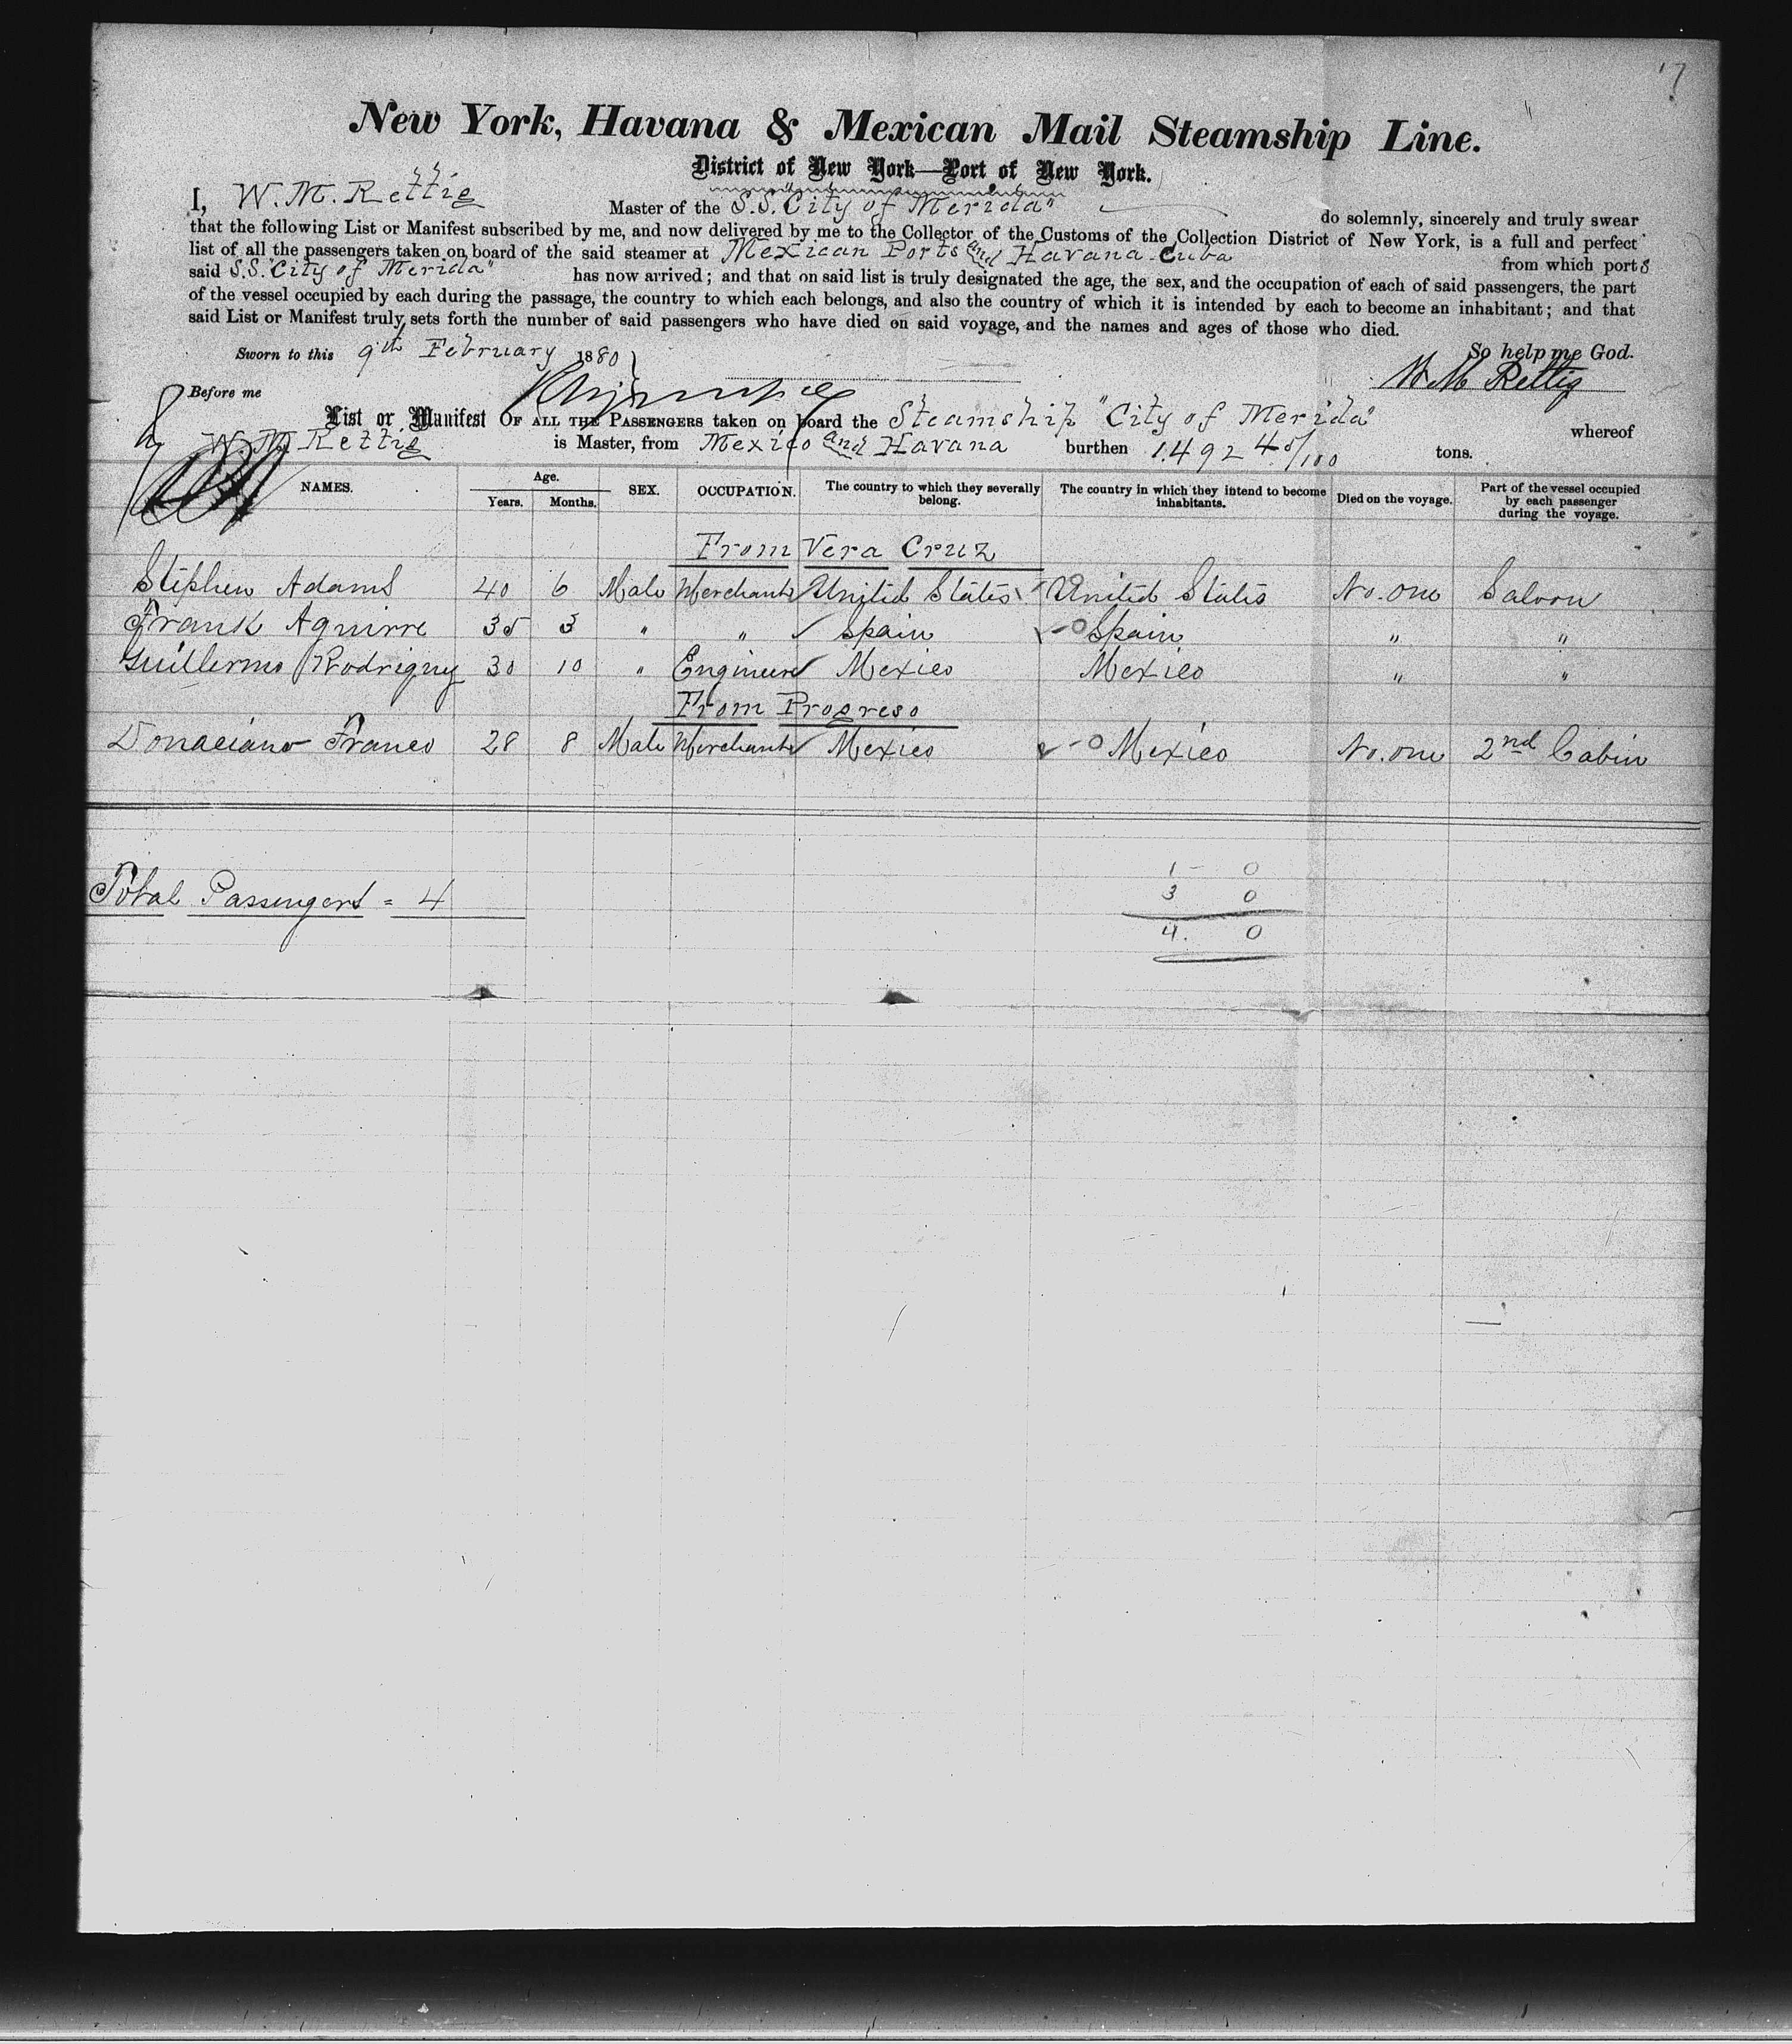 7
New York, Havana & Mexican Mail Steamship Line.
District of New York—Port of New York.
I, W. M. Rettig Master of the S.S. "City of Merida" do solemnly, sincerely and truly swear
that the following List or Manifest subscribed by me, and now delivered by me to the Collector of the Customs of the Collection District of New York, is a full and perfect
list of all the passengers taken on board of the said steamer at Mexican Ports and Havana Cuba from which ports
said S.S. "City of Merida" has now arrived; and that on said list is truly designated the age, the sex, and the occupation of each of said passengers, the part
of the vessel occupied by each during the passage, the country to which each belongs, and also the country of which it is intended by each to become an inhabitant; and that
said List or Manifest truly sets forth the number of said passengers who have died on said voyage, and the names and ages of those who died.
Sworn to this 9th February 1880 So help me God.
Before me W M Rettig
List or Manifest OF ALL THE PASSENGERS taken on board the Steamship "City of Merida" whereof
W. M. Rettig is Master, from Mexico and Havana burthen 1492 45/100 tons.
NAMES. Age. Years. Months. SEX. OCCUPATION. The country to which they severally belong. The country in which they intend to become inhabitants. Died on the voyage. Part of the vessel occupied by each passenger during the voyage.
From Vera Cruz
Stephen Adams 40 6 Male Merchant United States United States No. one Saloon
Frank Aguirre 35 3 " " Spain Spain " "
Guillermo Rodriguy 30 10 " Engineer Mexico Mexico " "
From Progreso
Donaciano Franco 28 8 Male Merchant Mexico Mexico No. one 2nd Cabin
1 - 0
Total Passengers = 4 3 0
4. 0